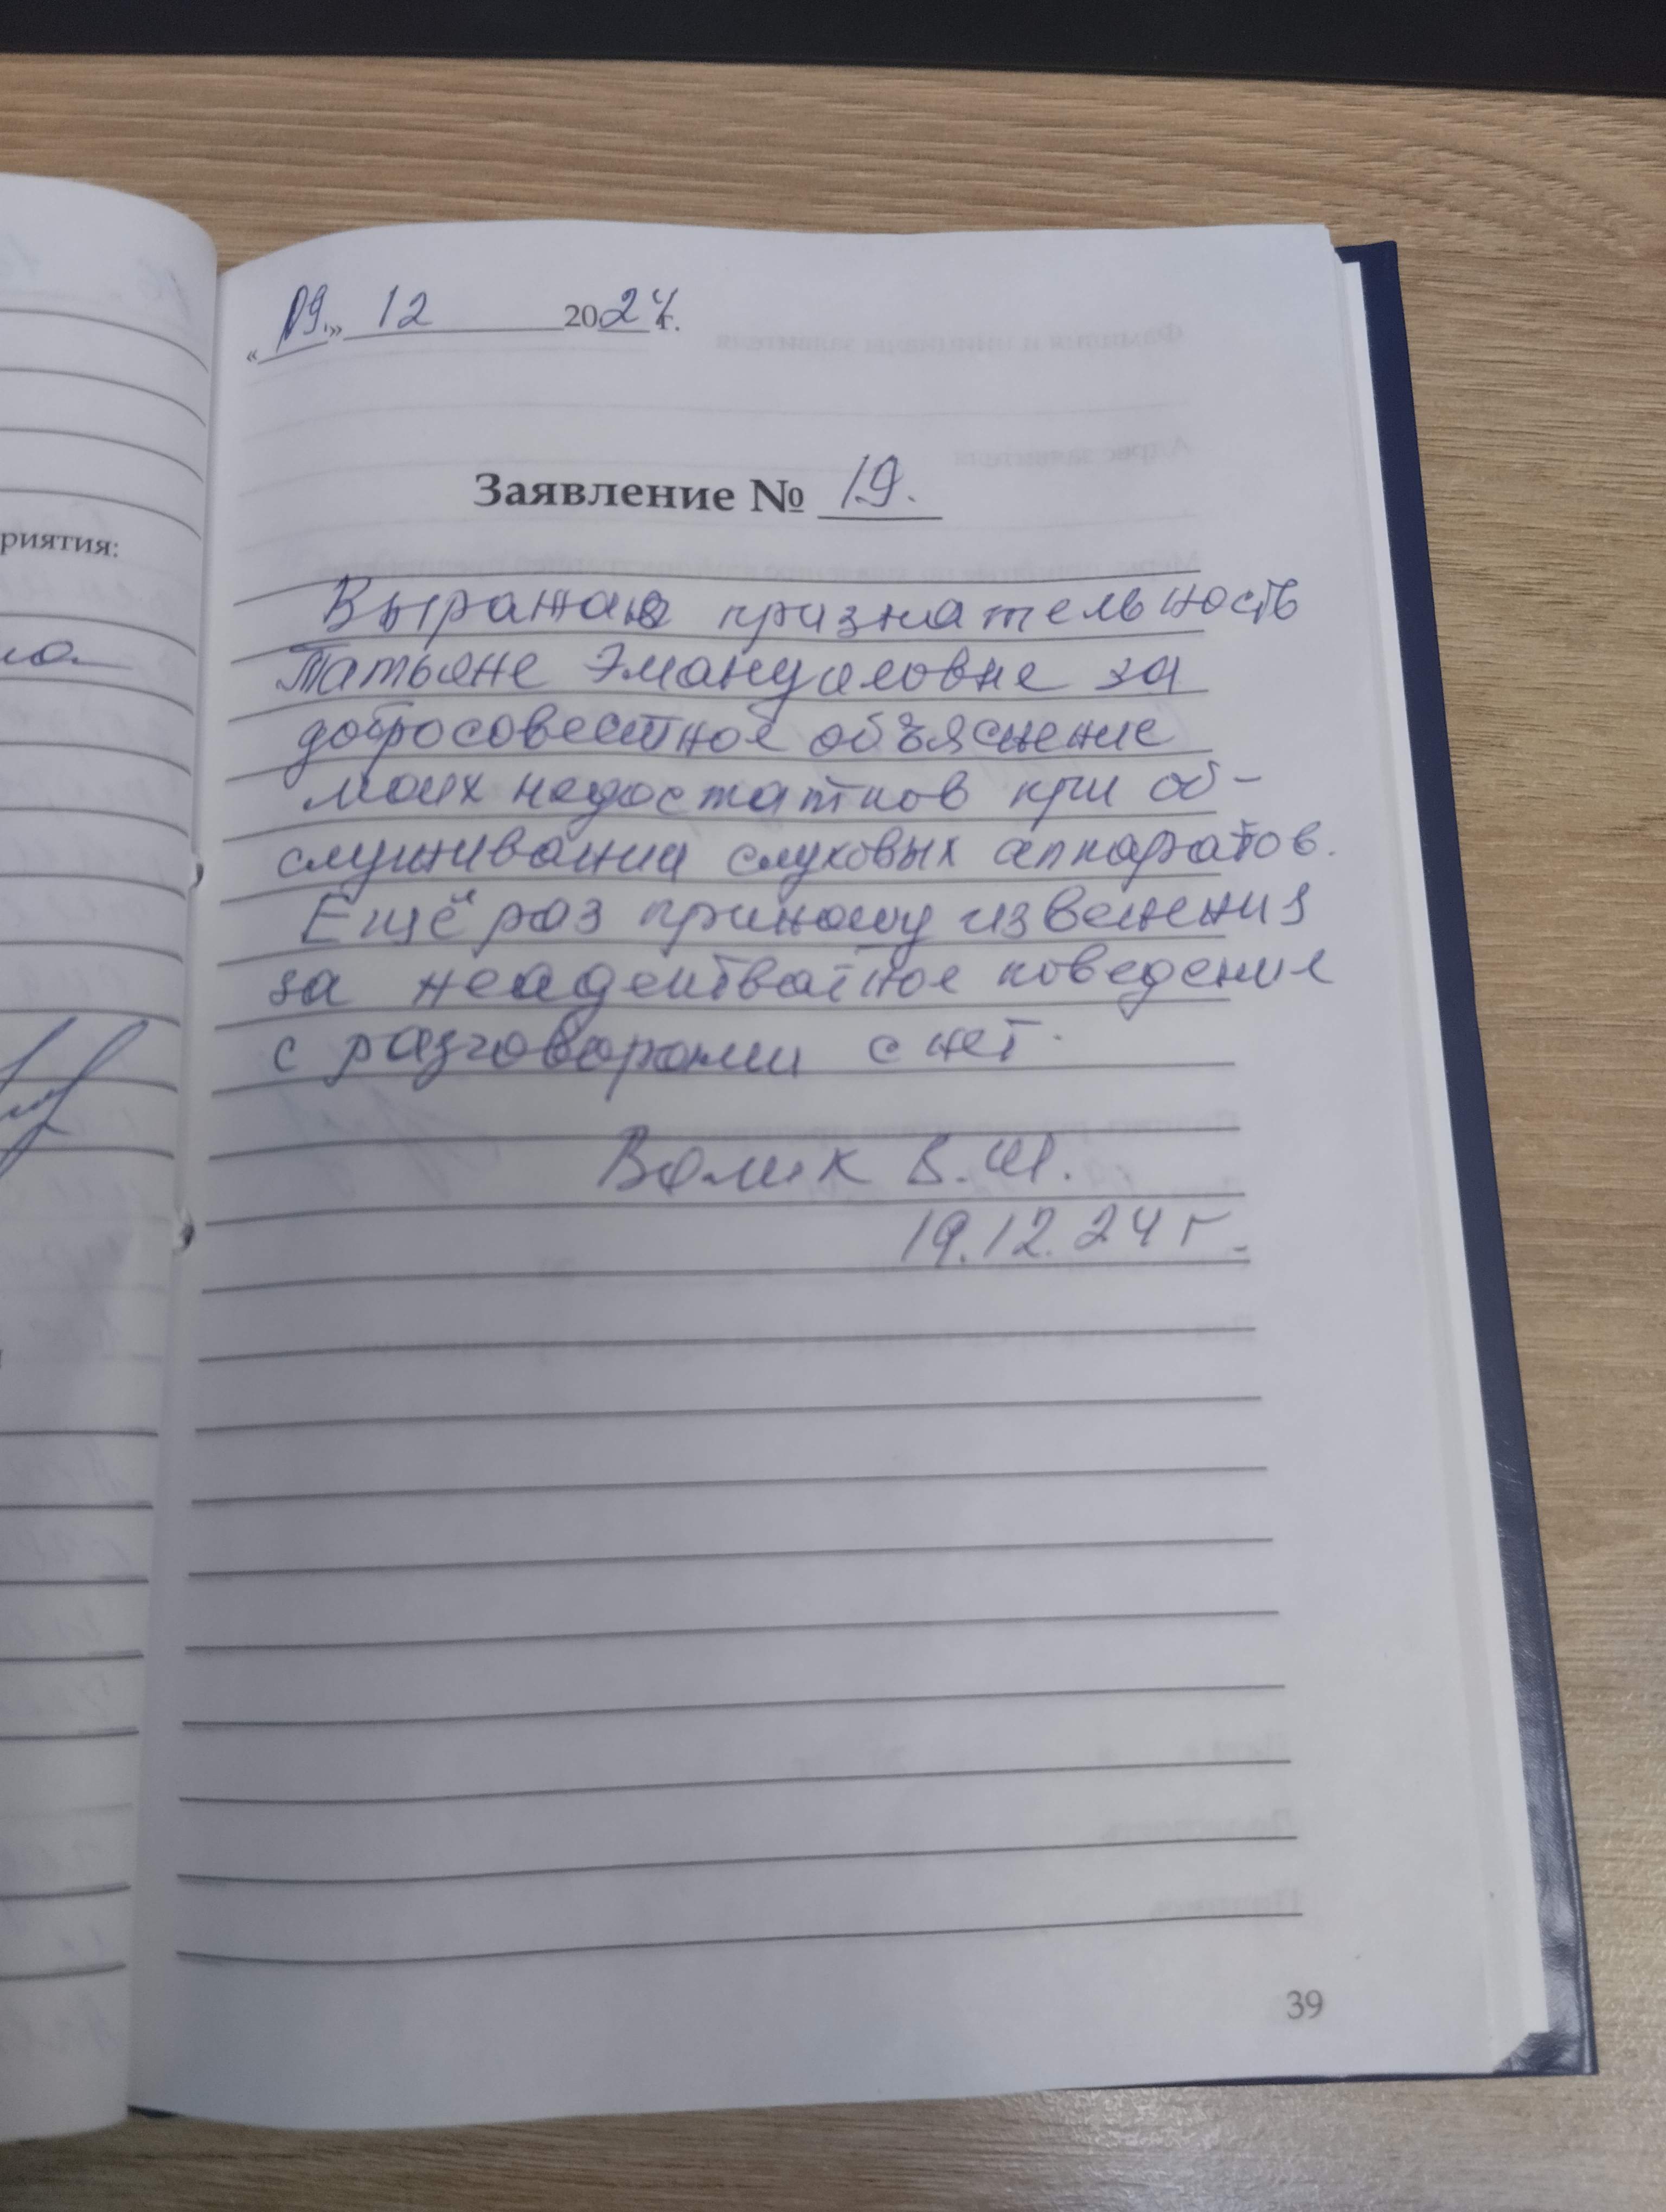 риятия:
«19.» 12 2024г.
Заявление № 19.
Выражаю признательность
Татьяне Эмануеловне за
добросовестное объяснение
моих недостатков при об-
служивании слуховых аппаратов.
Ещё раз приношу извенения
за неадекватное поведение
с разговорами с ней.
Волик В.И.
19.12.24 г.
39